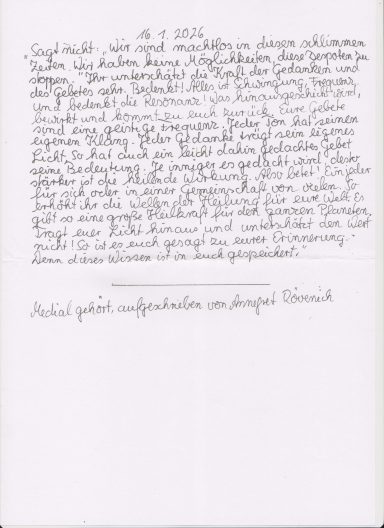 16.1.2026
"Sagt nicht: "Wir sind machtlos in diesen schlimmen
Zeiten. Wir haben keine Möglichkeiten, diese Despoten zu
stoppen." Ihr unterschätzt die Kraft der Gedanken und
des Gebetes sehr. Bedenkt! Alles ist Schwingung, Frequenz,
und bedenkt die Resonanz! Was hinausgeschickt wird,
bewirkt und kommt zu euch zurück. Eure Gebete
sind eine geistige Frequenz. Jeder Ton hat seinen
eigenen Klang. Jeder Gedanke trägt sein eigenes
Licht. So hat auch ein leicht dahin gedachtes Gebet
seine Bedeutung. Je inniger es gedacht wird, desto
stärker ist die heilende Wirkung. Also betet! Ein jeder
für sich oder in einer Gemeinschaft von vielen. So
erhöht ihr die Wellen der Heilung für eure Welt. Es
gibt so eine große Heilkraft für den ganzen Planeten.
Tragt euer Licht hinaus und unterschätzt den Wert
nicht! So ist es euch gesagt zu eurer Erinnerung.
Denn dieses Wissen ist in euch gespeichert."
Medial gehört, aufgeschrieben von Annegret Rövenich